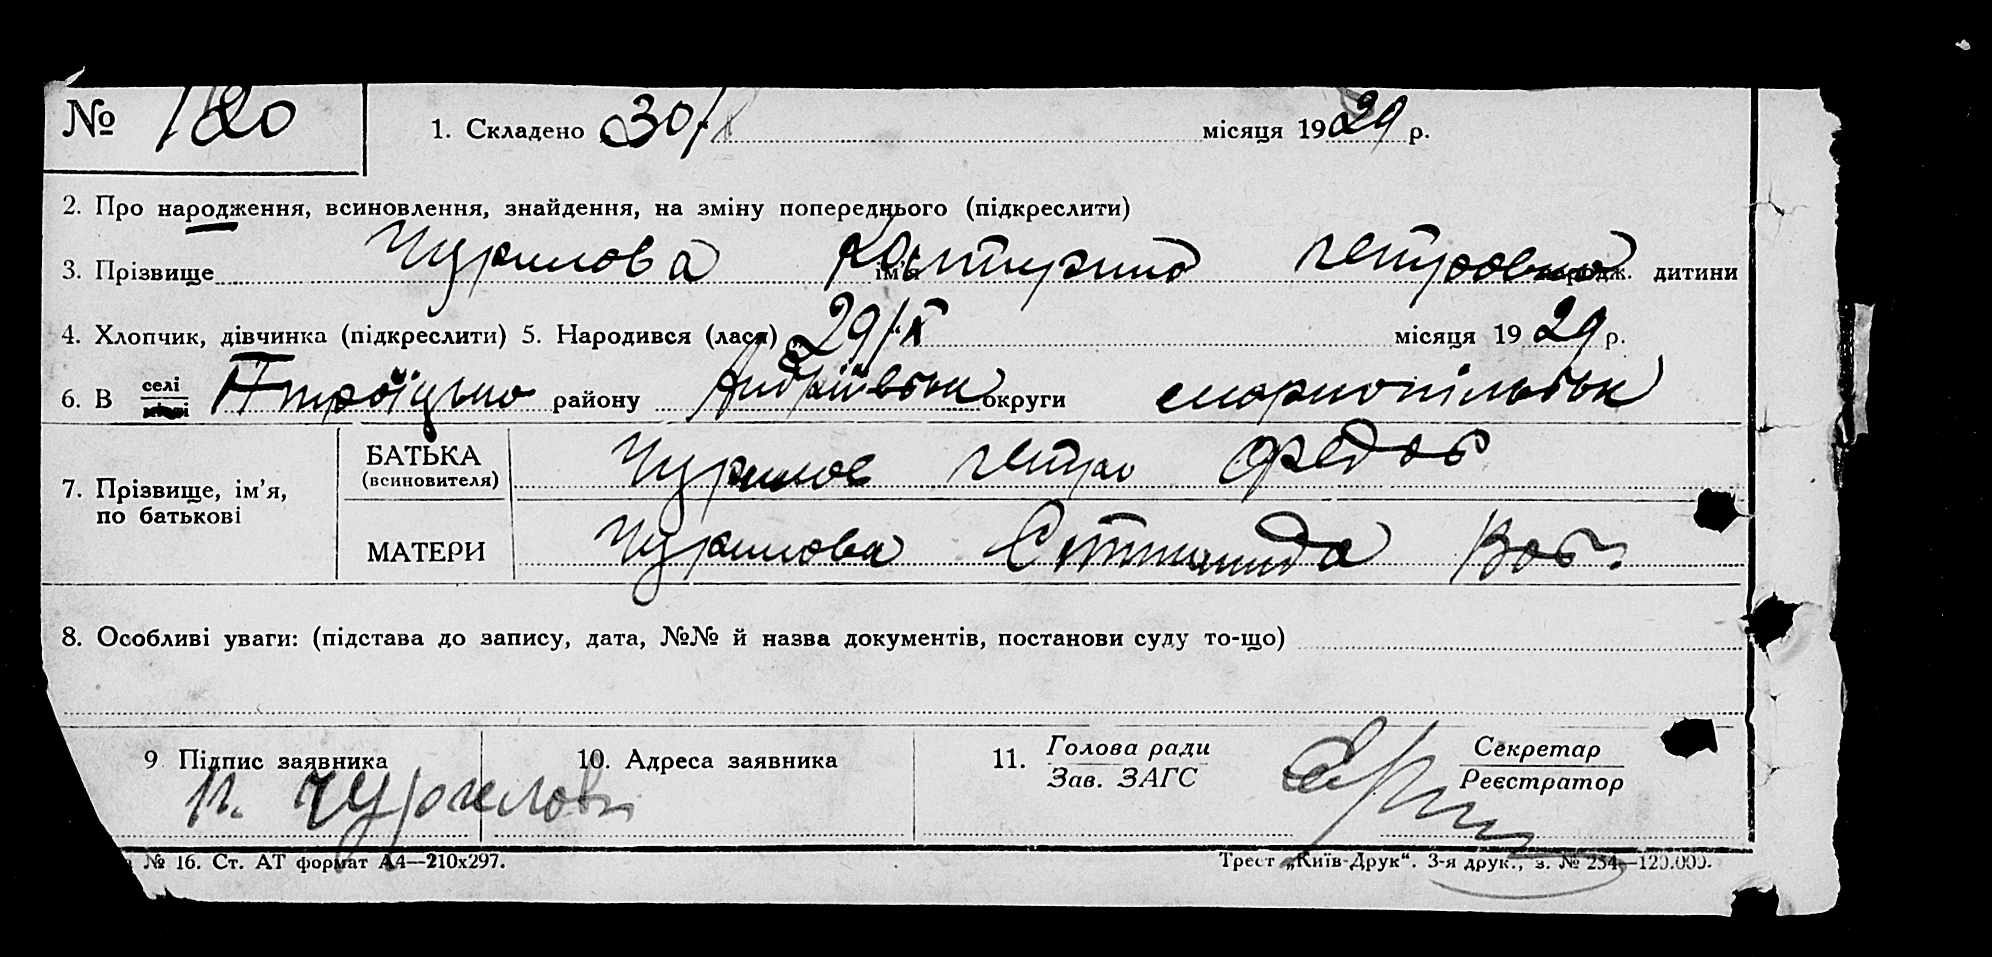 № 120 1. Складено 30/X місяця 1929 р.
2. Про народження, всиновлення, знайдення, на зміну попереднього (підкреслити)
3. Прізвище Чурилова ім'я Катерина Петровна народж. дитини
4. Хлопчик, дівчинка (підкреслити) 5. Народився (лася) 29/X місяця 1929 р.
6. В селі Троїцько району Андріївськ округи
7. Прізвище, ім'я, по батькові
БАТЬКА (всиновителя) Чурилов Петро Федов
МАТЕРИ Чурилова
8. Особливі уваги: (підстава до запису, дата, №№ й назва документів, постанови суду то-що)
9 Підпис заявника 10. Адреса заявника 11. Голова ради Зав. ЗАГС Секретар Реєстратор
п. Чурилов
№ 16. Ст. АТ формат А4—210х297. Трест „Київ-Друк“. 3-я друк., з. № 254—120.000.